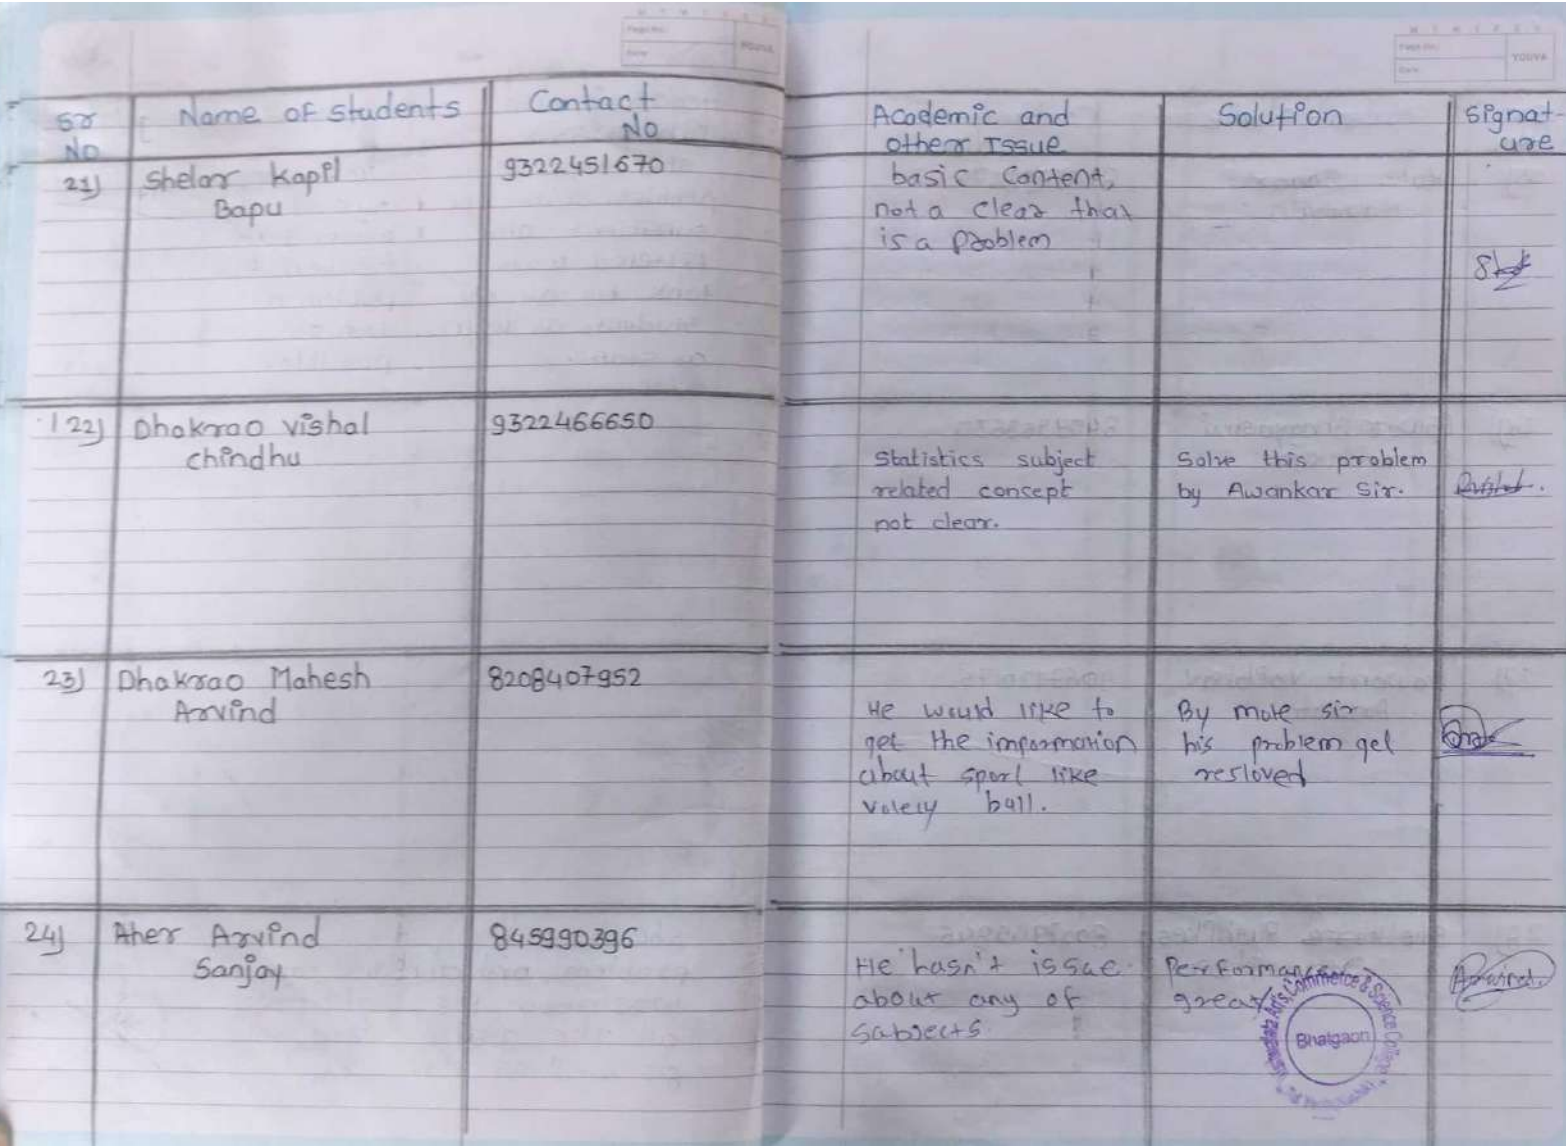 Sr No
Name of students
Contact No
Academic and other Issue
Solution
Signat-ure
21)
Shelar Kapil
Bapu
9322451670
basic Content,
not a clear that
is a problem
22)
Dhakrao vishal
chindhu
9322466650
Statistics subject
related concept
not clear.
Solve this problem
by Awankar Sir.
23)
Dhakrao Mahesh
Arvind
8208407952
He would like to
get the impormation
about sport like
volely ball.
By mote sir
his problem gel
resloved
24)
Aher Arvind
Sanjay
845990396
He hasn't issue
about any of
sabjects
Performance
great
Arts, Commerce & Science College
Bhatgaon
YOUVA
YOUVA